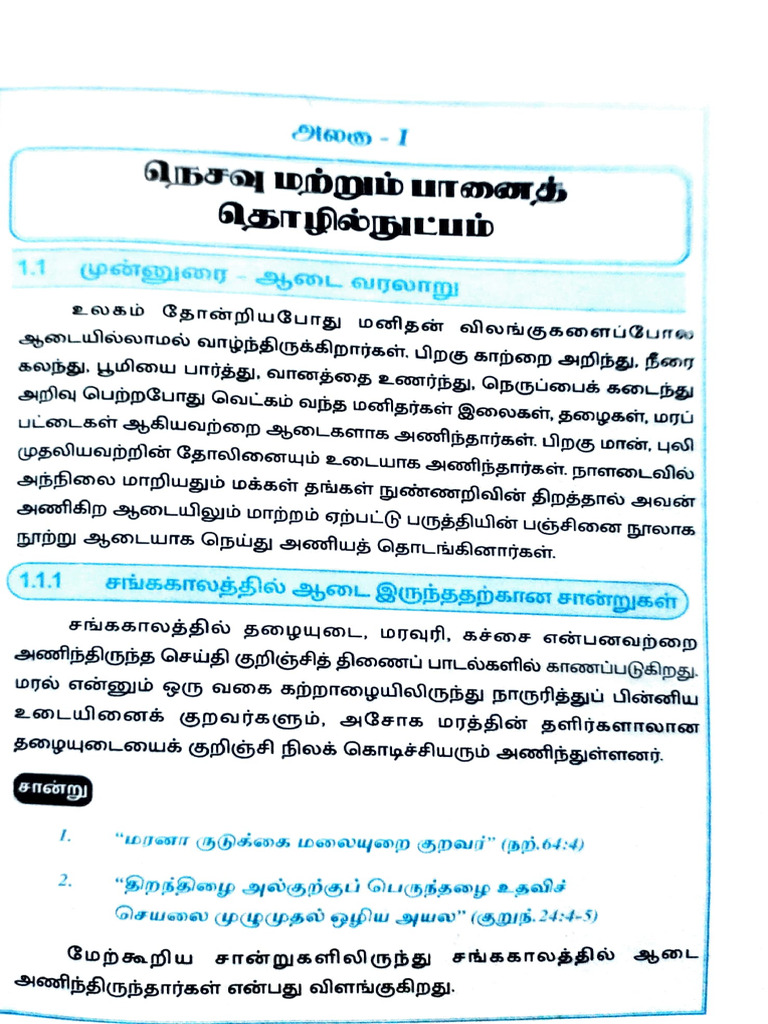 அலகு - 1
நெசவு மற்றும் பானைத்
தொழில்நுட்பம்
1.1 முன்னுரை – ஆடை வரலாறு
உலகம் தோன்றியபோது மனிதன் விலங்குகளைப்போல
ஆடையில்லாமல் வாழ்ந்திருக்கிறார்கள். பிறகு காற்றை அறிந்து, நீரை
கலந்து, பூமியை பார்த்து, வானத்தை உணர்ந்து, நெருப்பைக் கடைந்து
அறிவு பெற்றபோது வெட்கம் வந்த மனிதர்கள் இலைகள், தழைகள், மரப்
பட்டைகள் ஆகியவற்றை ஆடைகளாக அணிந்தார்கள். பிறகு மான், புலி
முதலியவற்றின் தோலினையும் உடையாக அணிந்தார்கள். நாளடைவில்
அந்நிலை மாறியதும் மக்கள் தங்கள் நுண்ணறிவின் திறத்தால் அவன்
அணிகிற ஆடையிலும் மாற்றம் ஏற்பட்டு பருத்தியின் பஞ்சினை நூலாக
நூற்று ஆடையாக நெய்து அணியத் தொடங்கினார்கள்.
1.1.1 சங்ககாலத்தில் ஆடை இருந்ததற்கான சான்றுகள்
சங்ககாலத்தில் தழையுடை, மரவுரி, கச்சை என்பனவற்றை
அணிந்திருந்த செய்தி குறிஞ்சித் திணைப் பாடல்களில் காணப்படுகிறது.
மரல் என்னும் ஒரு வகை கற்றாழையிலிருந்து நாருரித்துப் பின்னிய
உடையினைக் குறவர்களும், அசோக மரத்தின் தளிர்களாலான
தழையுடையைக் குறிஞ்சி நிலக் கொடிச்சியரும் அணிந்துள்ளனர்.
சான்று
1. “மரனா ருடுக்கை மலையுறை குறவர்” (நற்.64:4)
2. “திறந்திழை அல்குற்குப் பெருந்தழை உதவிச்
செயலை முழுமுதல் ஒழிய அயல” (குறுந்.24:4-5)
மேற்கூறிய சான்றுகளிலிருந்து சங்ககாலத்தில் ஆடை
அணிந்திருந்தார்கள் என்பது விளங்குகிறது.